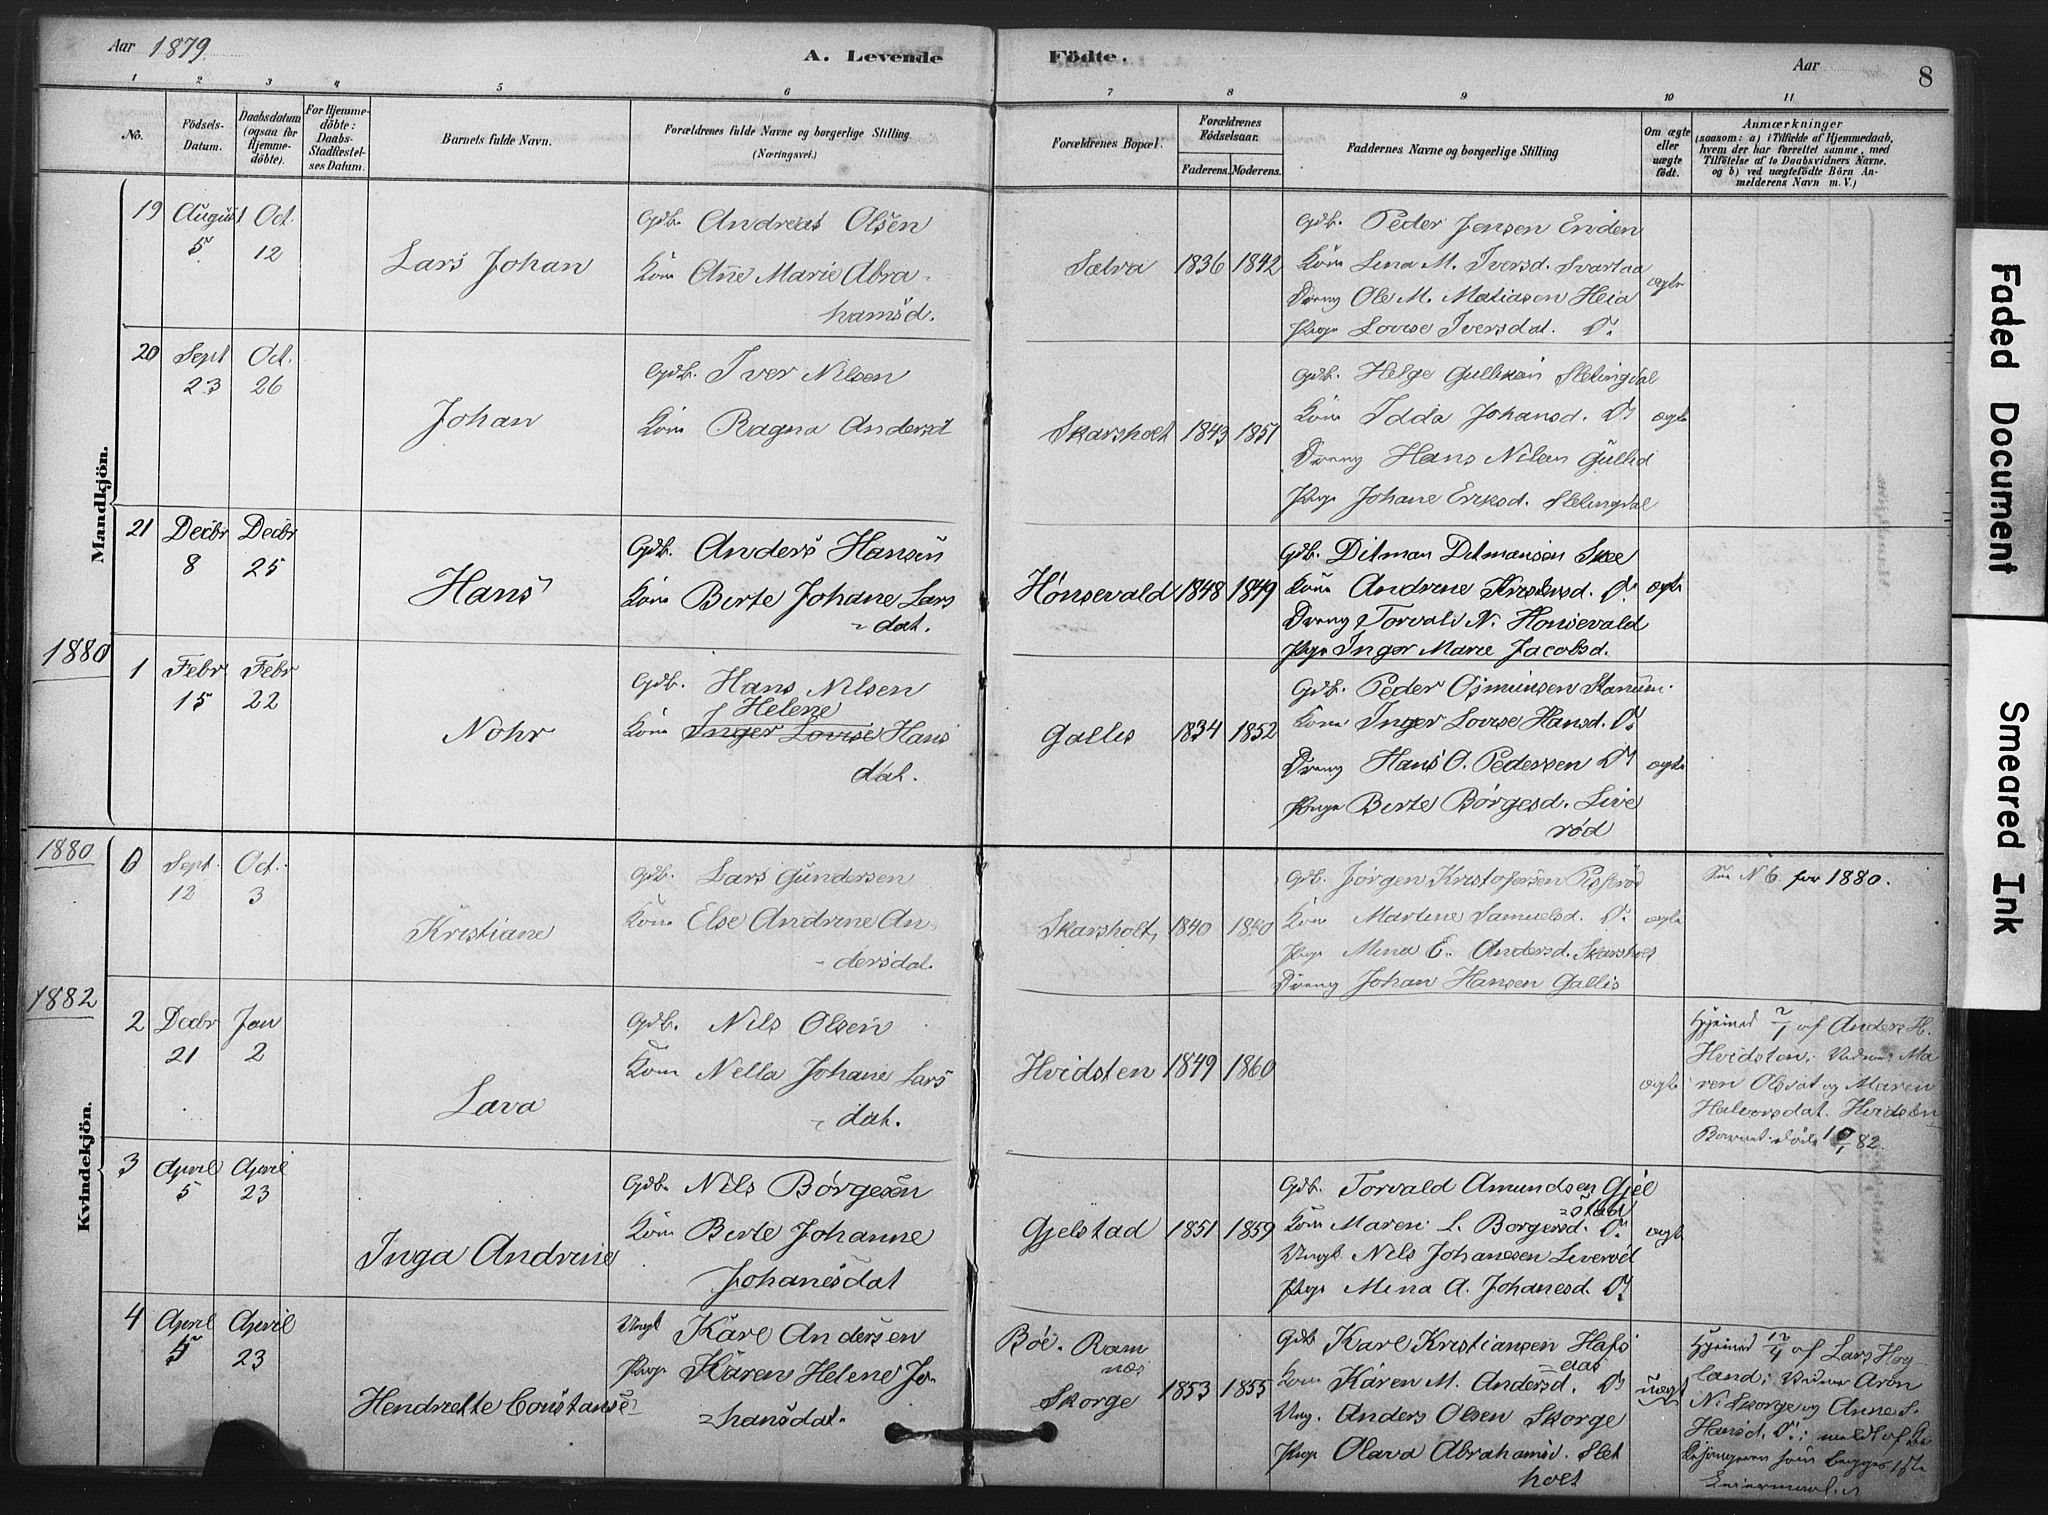 Aar 1879.
A. Levende Födte.
Aar
8
1 2 3 4 5 6 7 8 9 10 11
No.
Födsels-
Datum.
Daabsdatum
(ogsaa for
Hjemme-
döbte).
For Hjemme-
döbte:
Daabs-
Stadfæstel-
ses Datum.
Barnets fulde Navn.
Forældrenes fulde Navne og borgerlige Stilling.
(Næringsvei.)
Forældrenes Bopæl.
Forældrenes
Födselsaar.
Faderens. Moderens.
Faddernes Navne og borgerlige Stilling
Om ægte
eller
uægte
födt.
Anmærkninger
(saasom: a) i Tilfælde af Hjemmedaab,
hvem der har forrettet samme, med
Tilföielse af to Daabsvidners Navne.
og b) ved uægtefödte Börn An-
melderens Navn m. V.)
Mandkjön.
19 August 5 Oct. 12
Lars Johan
Gdb. Andreas Olsen
Kone Anne Marie Abra-
hamsd.
Sælva 1836 1842
Gdb. Peder Jensen Enden
Kone Lina M. Iversd. Svartaa
Dreng Ole M. Matiasen Heia
Pige Lovise Iversdat. Do.
ægte
20 Sept 23 Oct. 26
Johan
Gdb. Iver Nilsen
Kone Ragna Andersd
Skarsholt 1843 1851
Gdb. Helge Gulliksen Sletingdal
Kone Idda Johansd. Do
Dreng Hans Nilsen Gullid
Pige Johane Eriksd. Sletingdal
ægte
21 Decbr 8 Decbr 25
Hans
Gdb. Anders Hansen
Kone Birte Johane Lars
-dat.
Hönsevald 1848 1849
Gdb. Ditman Ditmansen Skee
Kone Andrine Kristensd. Do
Dreng Torvald N. Honsevald
Pige Inger Marie Jacobsd.
ægte
1880
1 Febr 15 Febr 22
Nohr
Gdb. Hans Nilsen
Helene
Kone Inger Lovise Hans
dat.
Gallis 1834 1852
Gdb. Peder Osmunsen
Kone Inger Lovise Hansd. Do
Dreng Hans O. Pedersen Do
Pige Birte Börgesd. Live
röd
ægte
Kvindekjön.
1880
0 Sept. 12 Oct. 3
Kristiane
Gdb. Lars Gundersen
Kone Else Andrine An-
dersdat.
Skarsholt, 1840 1840
Gdb. Jörgen Kristofersen
Kone Martine Samuelsd. Do
Pige Mina E. Andersd. Skarsholt
Dreng Johan Hansen Gallis
ægte
Se N 6 for 1880.
1882
2 Decbr 21 Jan 2
Lava
Gdb. Nils Olsen
Kone Nella Johane Lars
-dat.
Hvidsten 1849 1860
ægte
Hjemmed 2/1 af Anders H.
Hvidsten; Vidner Ma
ren Olsdat og Maren
Halvorsdat. Hvidsten
Barnet döde 82.
3 April 5 April 23
Inga Andrine
Gdb. Nils Börgesen
Kone Birte Johanne
Johanesdat
Gjelstad 1851 1859
Gdb. Torvald Amundsen Gjel
=stad
Kone Maren L. Borgersd. Do
Ungk. Nils Johanesen Liveröd
Pige Mina A. Johanesd. Do
ægte
4 April 5 April 23
Hendriette Constanse
Ungk Karl Andersen
Pige Karen Helene Jo-
=hansdat.
Böe. Ram
næs
Skorge 1853 1855
Gdb Karl Kristiansen Hafs
=aas
Kone Karen M. Andersd. Do
Ung. Anders Olsen Skorge
Pige Olava Abrahamsd. Slet
holt
uægte
Hjemmed 12/4 af Lars Hog-
land; Vidner Aron
N. Skorge og Anne S.
Hansd. Do; meldt af
som begges 1ste
Leiermaal.
Faded Document
Smeared Ink